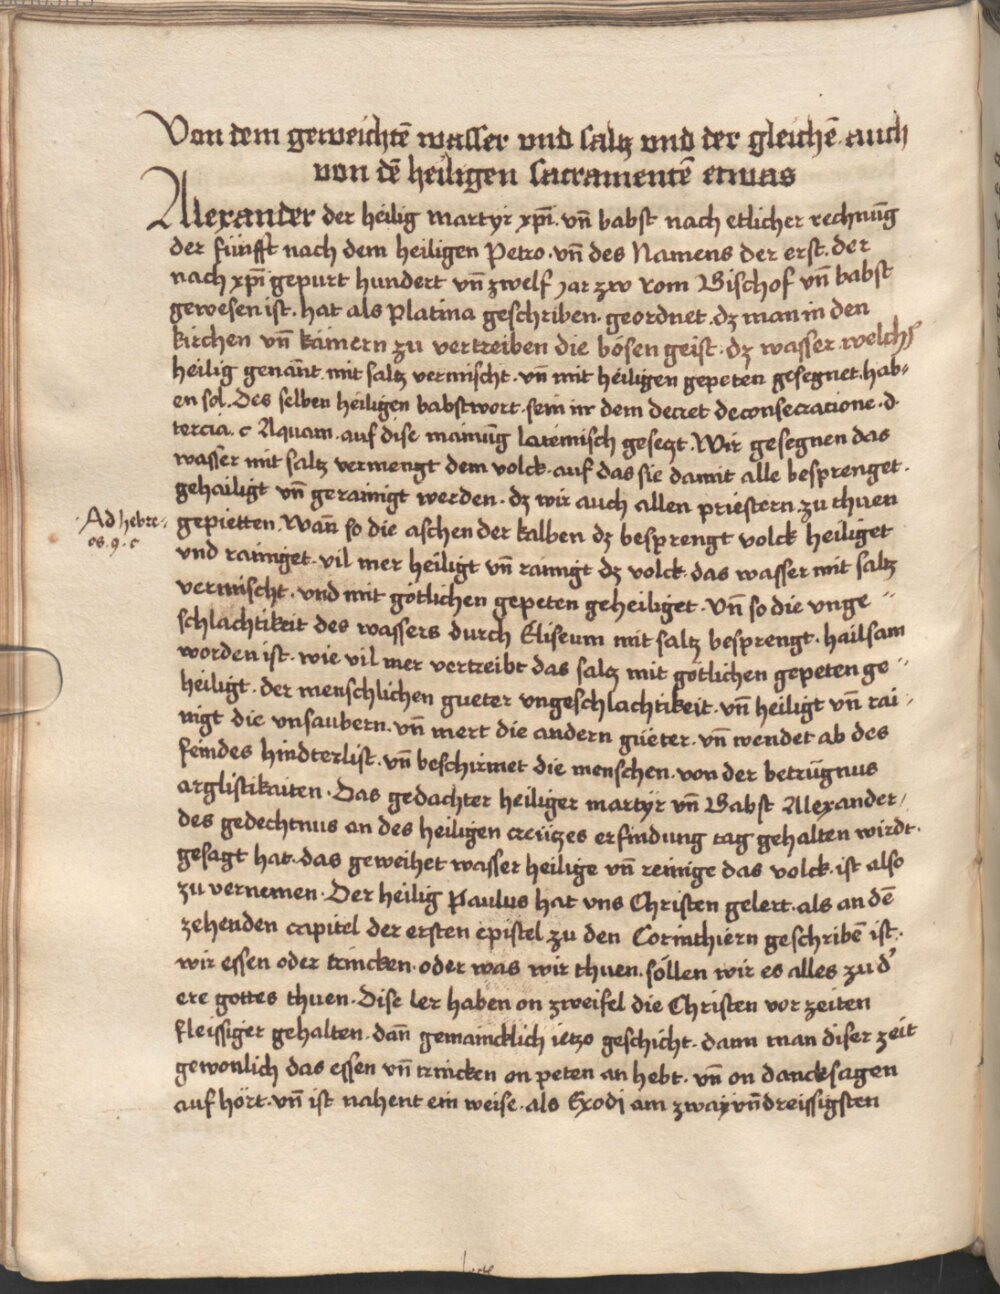 Von dem geweichtē wasser vnd saltz vnd der gleichē auch
von dē heiligen sacramentē etwas
Alexander der heilig martyr xpī. vn̄ babst nach etlicher rechnūg
der fünfft nach dem heiligen Petro. vn̄ des Namens der erst. der
nach xpī gepurt hundert vn̄ zwelf jar zw rom Bischof vn̄ babst
gewesen ist. hat als platina geschriben. geordnet. dz man in den
kirchen vn̄ kamern zu vertreiben die bösen geist. dz wasser welchs
heilig genān̄t mit saltz vermischt. vn̄ mit heiligen gepeten gesegnet. hab-
en sol. Des selben heiligen babst wort. sein in dem decret de consecracione. d.
tercia. c Aquam. auf dise mainūg lateinisch gesetzt. Wir gesegnen das
wasser mit saltz vermengt dem volck. auf das sie damit alle besprenget.
gehailigt vn̄ gerainigt werden. dz wir auch allen priestern zu thuen
Ad hebre-
os. 9. c
gepietten. Wan̄ so die aschen der kalben dz besprengt volck heiliget
vnd rainiget. vil mer heiligt vn̄ rainigt dz volck. das wasser mit saltz
vermischt. vnd mit götlichen gepeten geheiliget. vn̄ so die vnge-
schlachtikeit des wassers durch Eliseum mit saltz besprengt. hailsam
worden ist. wie vil mer vertreibt das saltz mit götlichen gepeten ge-
heiligt. der menschlichen gueter vngeschlachtikeit. vn̄ heiligt vn̄ rai-
nigt die vnsaubern. vn̄ mert die andern güeter. vn̄ wendet ab des
feindes hindterlist. vn̄ beschirmet die menschen. von der betrügnus
arglistikaiten. Das gedachter heiliger martyr vn̄ Babst Alexander/
des gedechtnus an des heiligen creützes erfindung tag gehalten wirdt.
gesagt hat. das geweihet wasser heilige vn̄ reinige das volck. ist also
zu vernemen. Der heilig Paulus hat vns Christen gelert. als an dē
zehenden capitel der ersten epistel zu den Corinthiern geschribē ist.
wir essen oder trincken. oder was wir thuen. söllen wir es alles zu d'
ere gottes thuen. Dise ler haben on zweifel die Christen vor zeiten
fleissiger gehalten. dan̄ gemaincklich ietzo geschicht. dann man diser zeit
gewonlich das essen vn̄ trincken on peten an hebt. vn̄ on dancksagen
auf hört. vn̄ ist nahent ein weise. als Exodj am zway vn̄dreissigsten